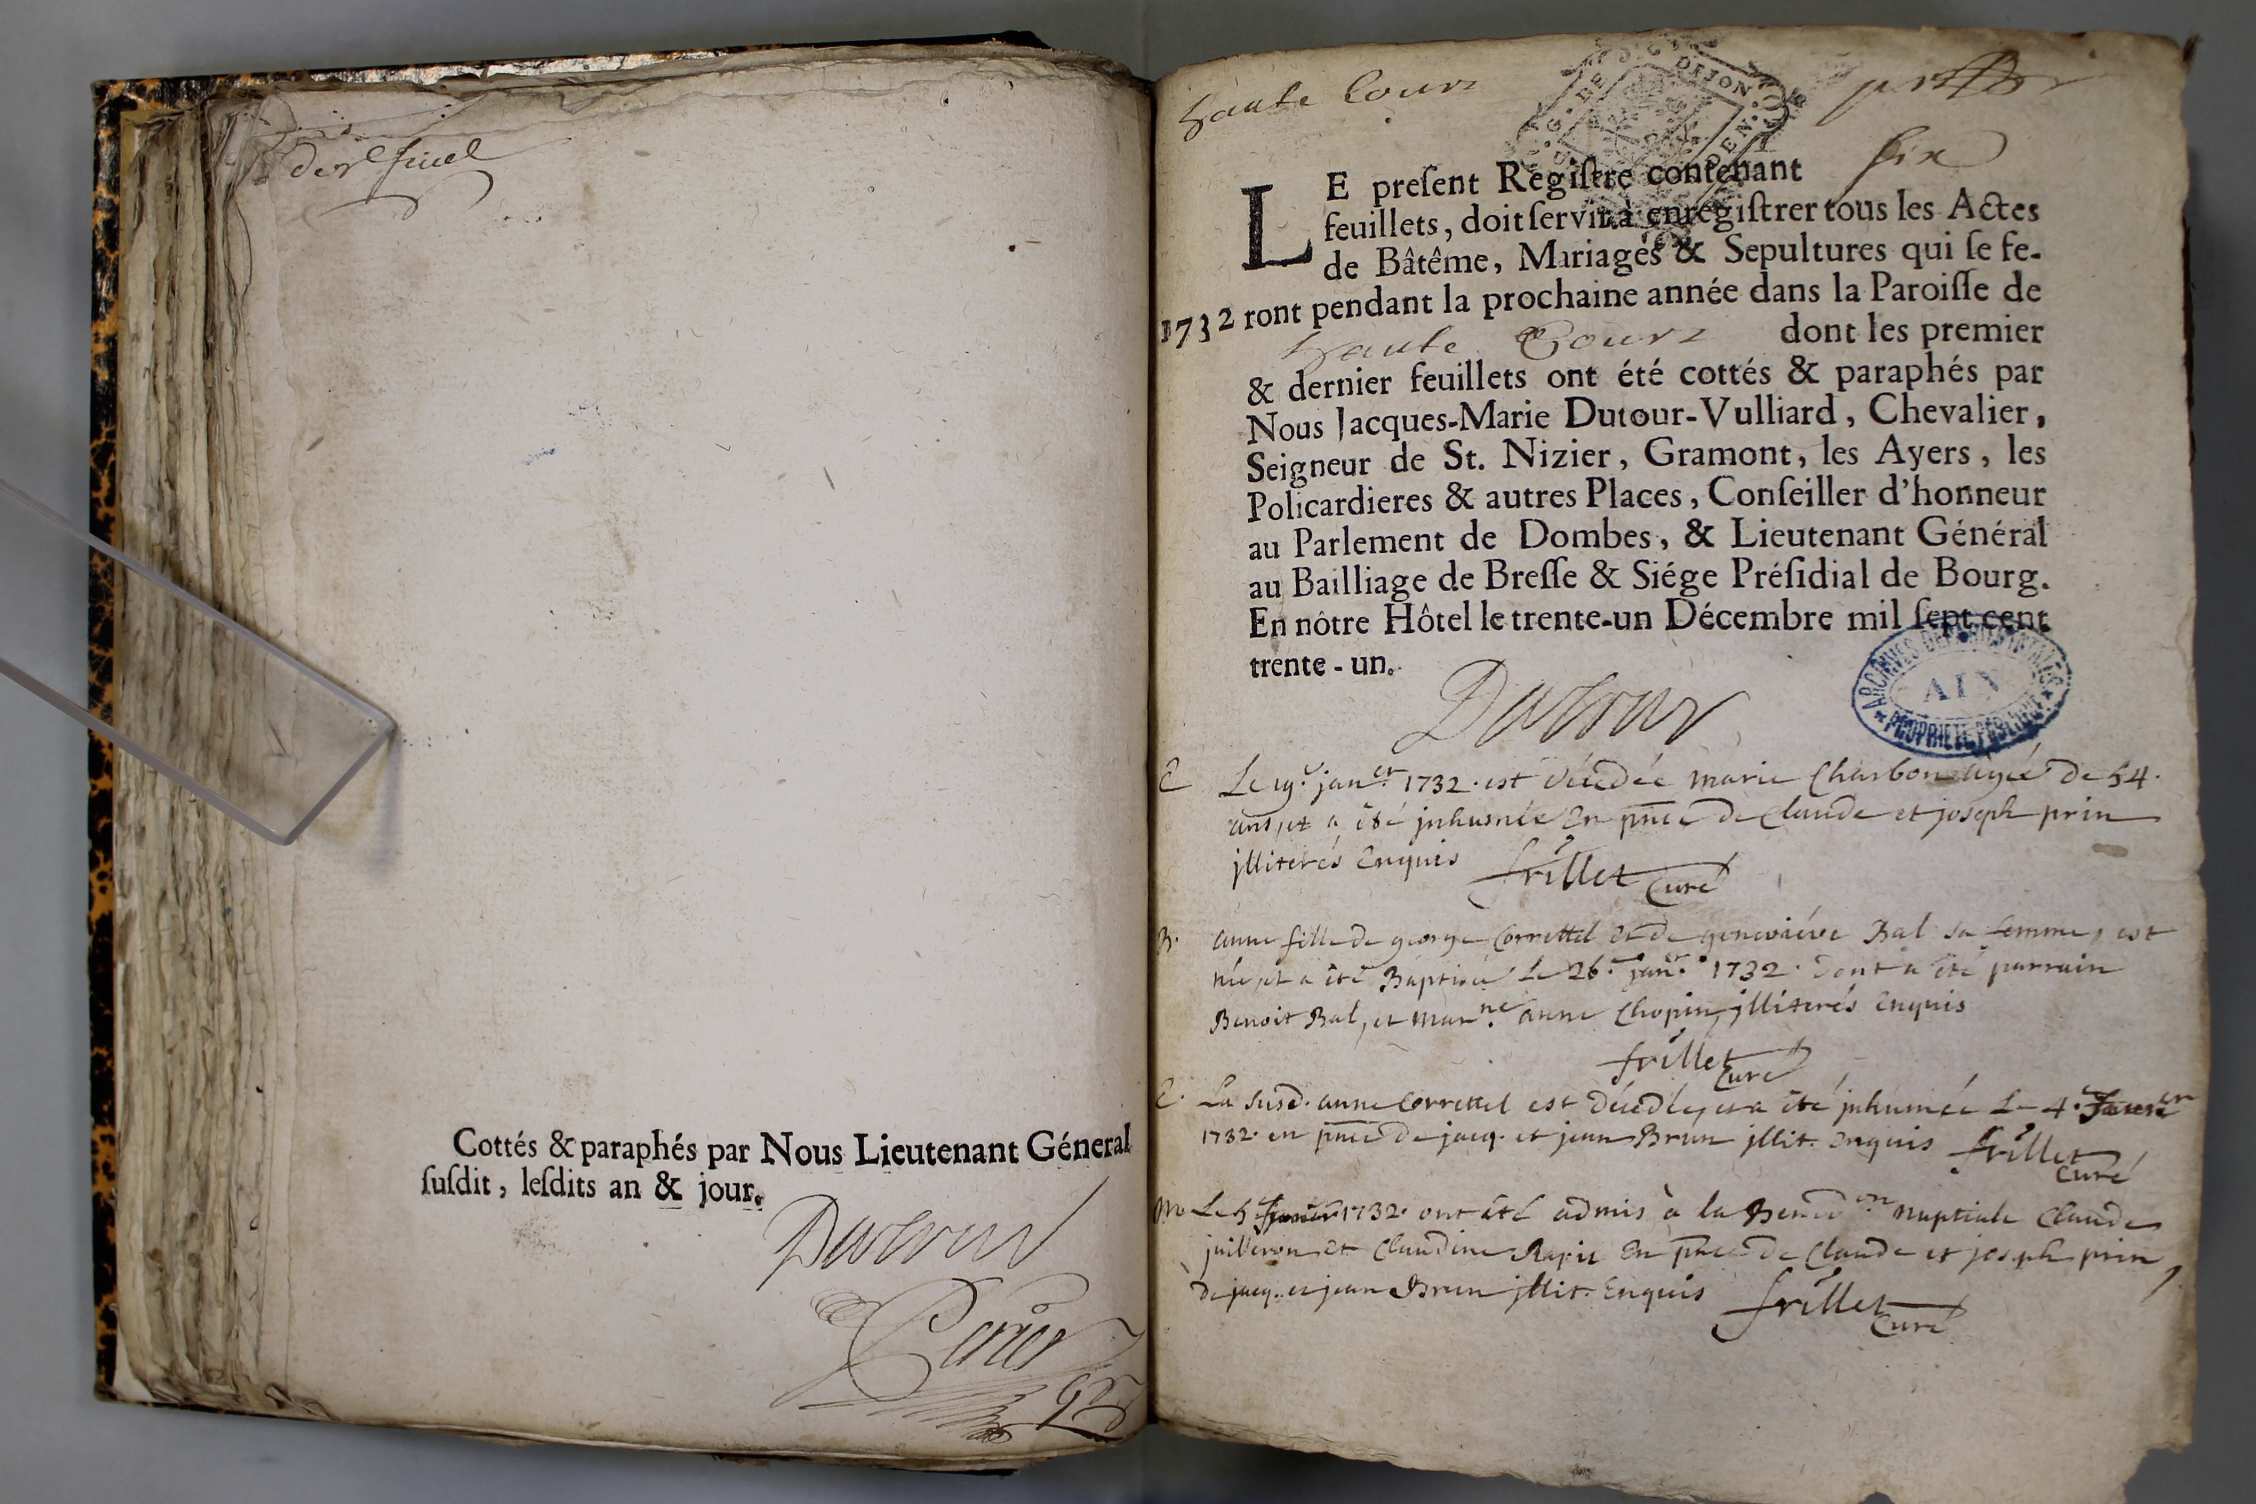 Cottés & paraphés par Nous Lieutenant Géneral
ſuſdit, leſdits an & jour.
Dutour
haute Cour
DIJON
six
LE preſent Regiſtre contenant
feuillets, doit ſervir à enregiſtrer tous les Actes
de Bâtême, Mariages & Sepultures qui ſe fe-
1732 ront pendant la prochaine année dans la Paroiſſe de
haute Cour dont les premier
& dernier feuillets ont été cottés & paraphés par
Nous Jacques-Marie Dutour-Vulliard, Chevalier,
Seigneur de St. Nizier, Gramont, les Ayers, les
Policardieres & autres Places, Conſeiller d'honneur
au Parlement de Dombes, & Lieutenant Général
au Bailliage de Breſſe & Siége Préſidial de Bourg.
En nôtre Hôtel le trente-un Décembre mil ſept cent
trente-un.
Dutour
ARCHIVES DEPARTEMENTALES
AIN
PROPRIETE PUBLIQUE
Le 19e janer 1732 est décédée marie Charbon agée de 54
ans, et a été jnhumée En pnce de Claude et joseph prin
jlliterés Enquis frillet Curé
B. anne fille de george Correttel et de genevieve Bal sa femme, est
née, et a été Baptisée Le 26e janer 1732. dont a été parrain
Benoit Bal, et marne anne Chopin, jlliterés Enquis
frillet Curé
La susd. anne Correttel est décédée, et a été jnhumée Le 4e
1732. en pnce de jacq. et jean Brun jllit. Enquis frillet
Curé
M Le 5e 1732. ont été admis à la Bened.on nuptiale Claude
juilleron et Claudine Rapit En pnce de Claude et joseph prin,
de jacq. et jean Brun jllit. Enquis frillet
Curé